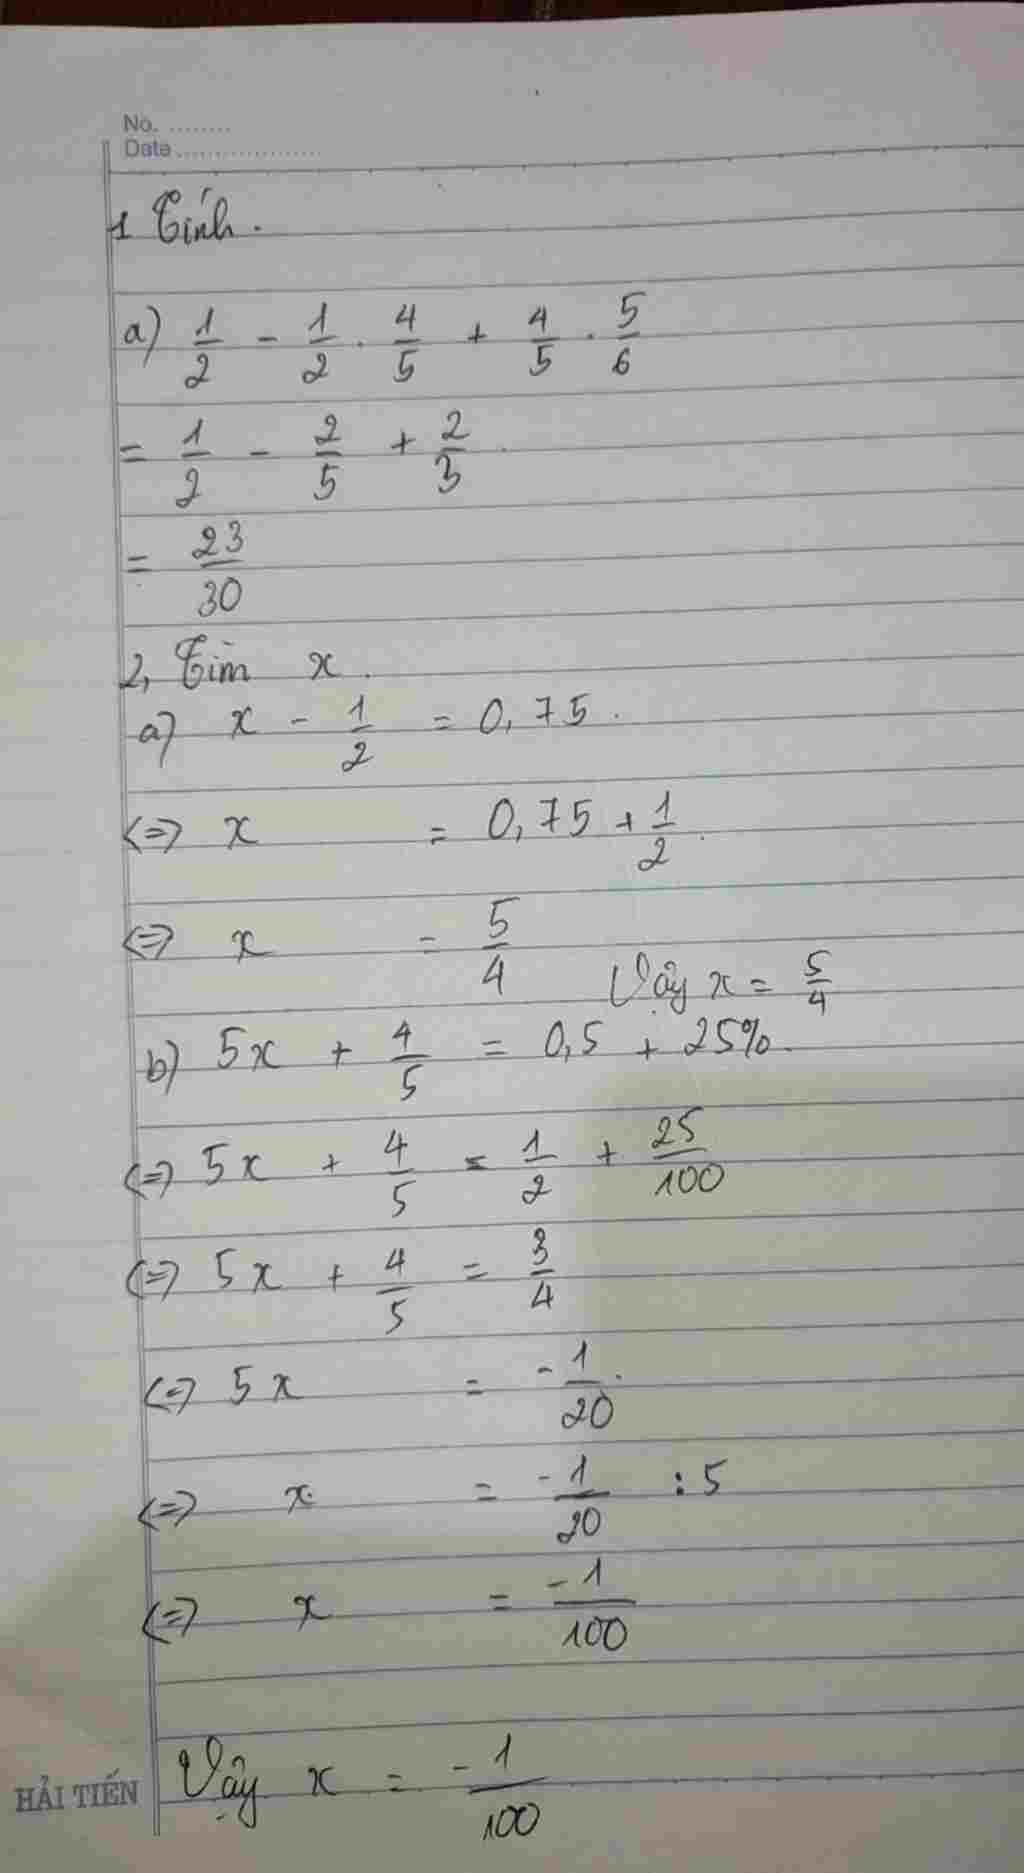 No. ........
Date ..................
1 Tính.
a) 1/2 - 1/2 . 4/5 + 4/5 . 5/6
= 1/2 - 2/5 + 2/3
= 23/30
2, Tìm x.
a) x - 1/2 = 0,75.
<=> x = 0,75 + 1/2.
<=> x = 5/4
Vậy x = 5/4
b) 5x + 4/5 = 0,5 + 25%.
<=> 5x + 4/5 = 1/2 + 25/100
<=> 5x + 4/5 = 3/4
<=> 5x = -1/20.
<=> x = -1/20 : 5
<=> x = -1/100
Vậy x = -1/100
HẢI TIẾN